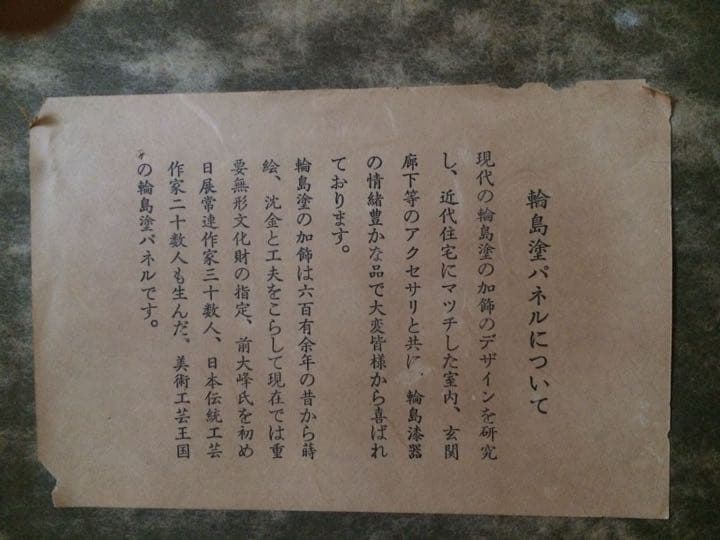 輪島塗パネルについて
現代の輪島塗の加飾のデザインを研究
し、近代住宅にマッチした室内、玄関
廊下等のアクセサリと共に 輪島漆器
の情緒豊かな品で大変皆様から喜ばれ
ております。
輪島塗の加飾は六百有余年の昔から蒔
絵、沈金と工夫をこらして現在では重
要無形文化財の指定、前大峰氏を初め
日展常連作家三十数人、日本伝統工芸
作家二十数人も生んだ、美術工芸王国
の輪島塗パネルです。